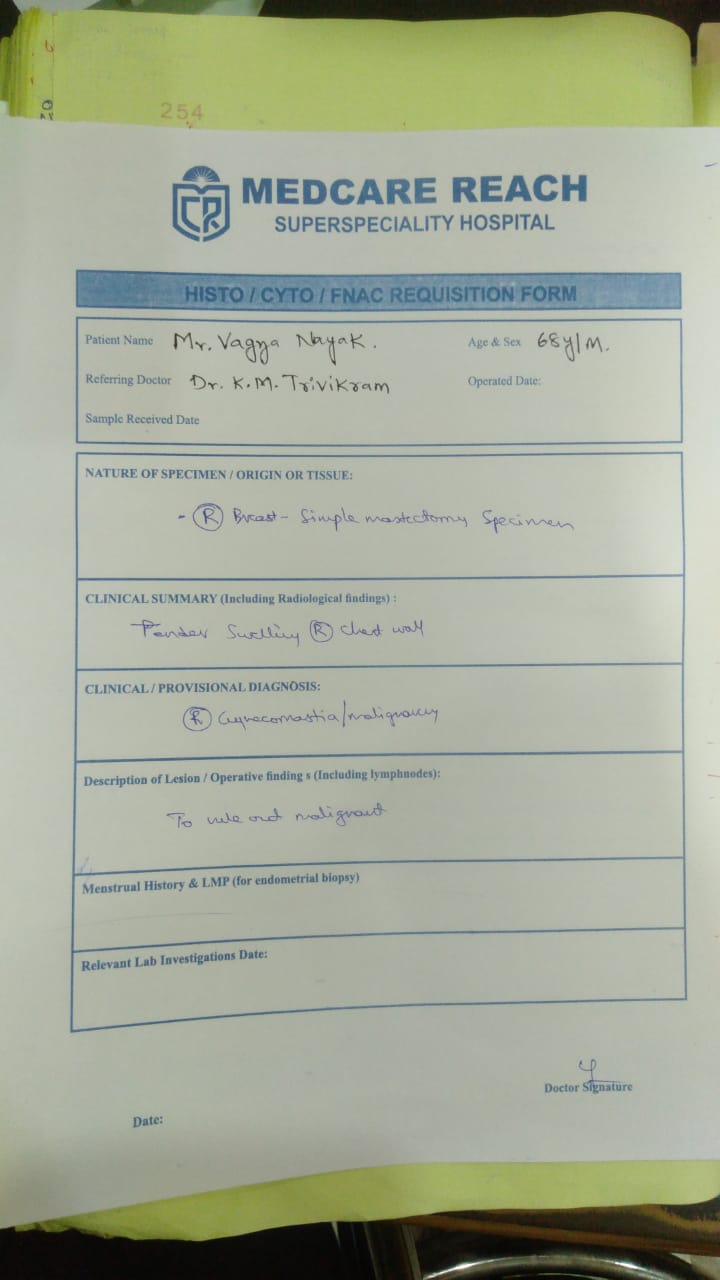 254
MEDCARE REACH
SUPERSPECIALITY HOSPITAL
HISTO / CYTO / FNAC REQUISITION FORM
Patient Name Mr. Vagya Nayak. Age & Sex 68y/M.
Referring Doctor Dr. K.M. Trivikram Operated Date:
Sample Received Date
NATURE OF SPECIMEN / ORIGIN OR TISSUE:
- R Breast - Simple mastectomy Specimen
CLINICAL SUMMARY (Including Radiological findings) :
Tender Swelling R chest wall
CLINICAL / PROVISIONAL DIAGNOSIS:
R Gynecomastia/malignancy
Description of Lesion / Operative finding s (Including lymphnodes):
To rule out malignant
Menstrual History & LMP (for endometrial biopsy)
Relevant Lab Investigations Date:
Doctor Signature
Date: